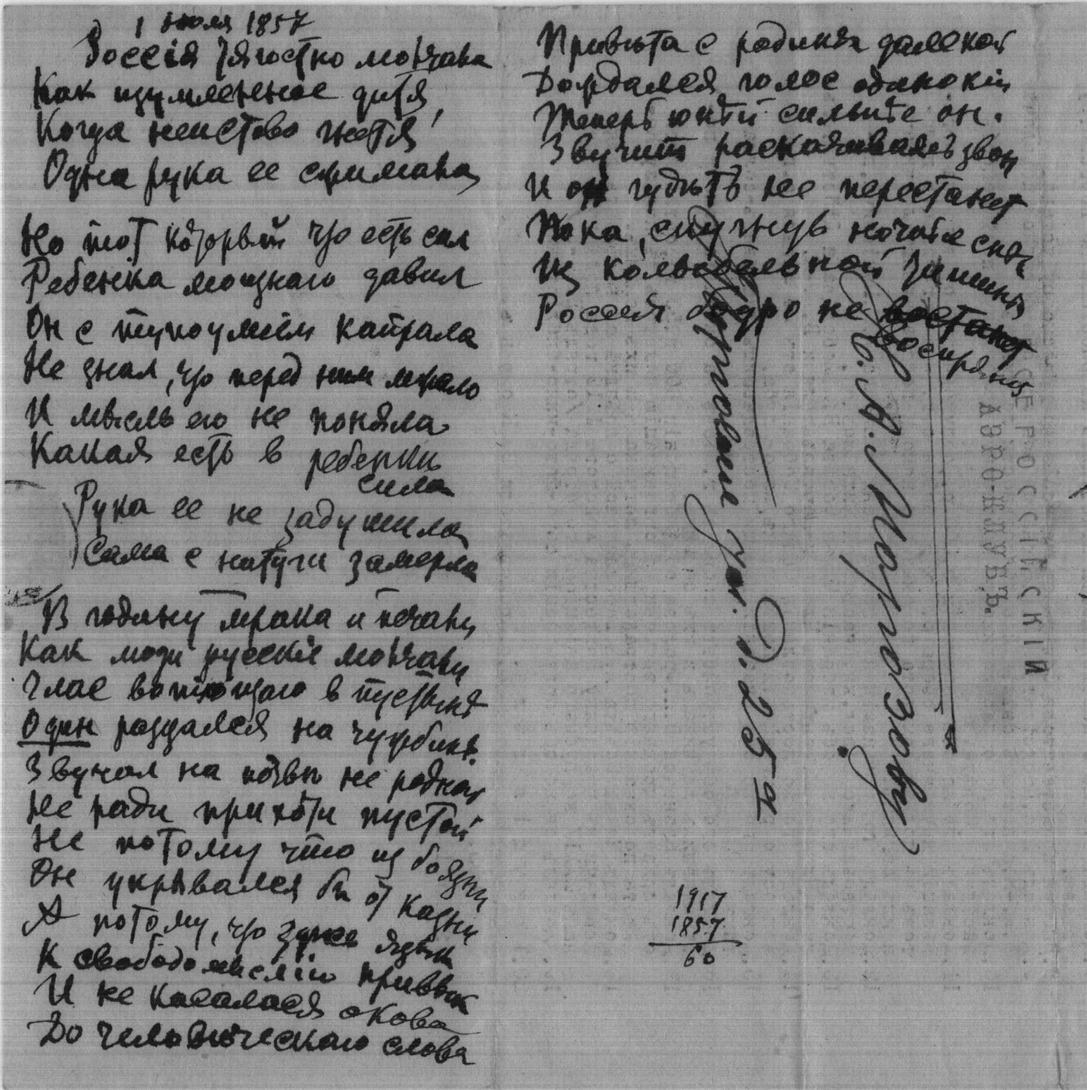 1 июля 1857
Россія тягостно молчала
Как изумленное дитя,
Когда неистово гнетя
Одна рука ее сжимала
Но тот который что есть сил
Ребенка мощнаго давил
Он с тупоуміем капрала
Не знал, что перед ним лежало
И мысль его не поняла
Какая есть в ребенкѣ
сила
Рука ее не задушила
Сама с натуги замерла
В годину мрака и печали
Как люди русскіе молчали
Глас вопіющаго в пустынѣ
Один раздался на чужбинѣ.
Звучал на почвѣ не родной
Не ради прихоти пустой
Не потому что из боязни
Он укрывался бы от казни
А потому, что здесь язык
К свободомыслію привык
И не касалася окова
До человѣческаго слова
Привѣта с родины далекой
Дождался голос одинокій
Теперь юнѣй сильнѣе он.
Звучит раскачиваясь звон
И он гудѣть не перестанет
Пока, спугнув ночные сны
Из колыбельной тишины
Россія бодро не
воспрянет
Торговая ул. д. 25
Е. А. Морозову
ВСЕРОССІЙСКІЙ
АЭРО-КЛУБЪ.
1917
1857
60